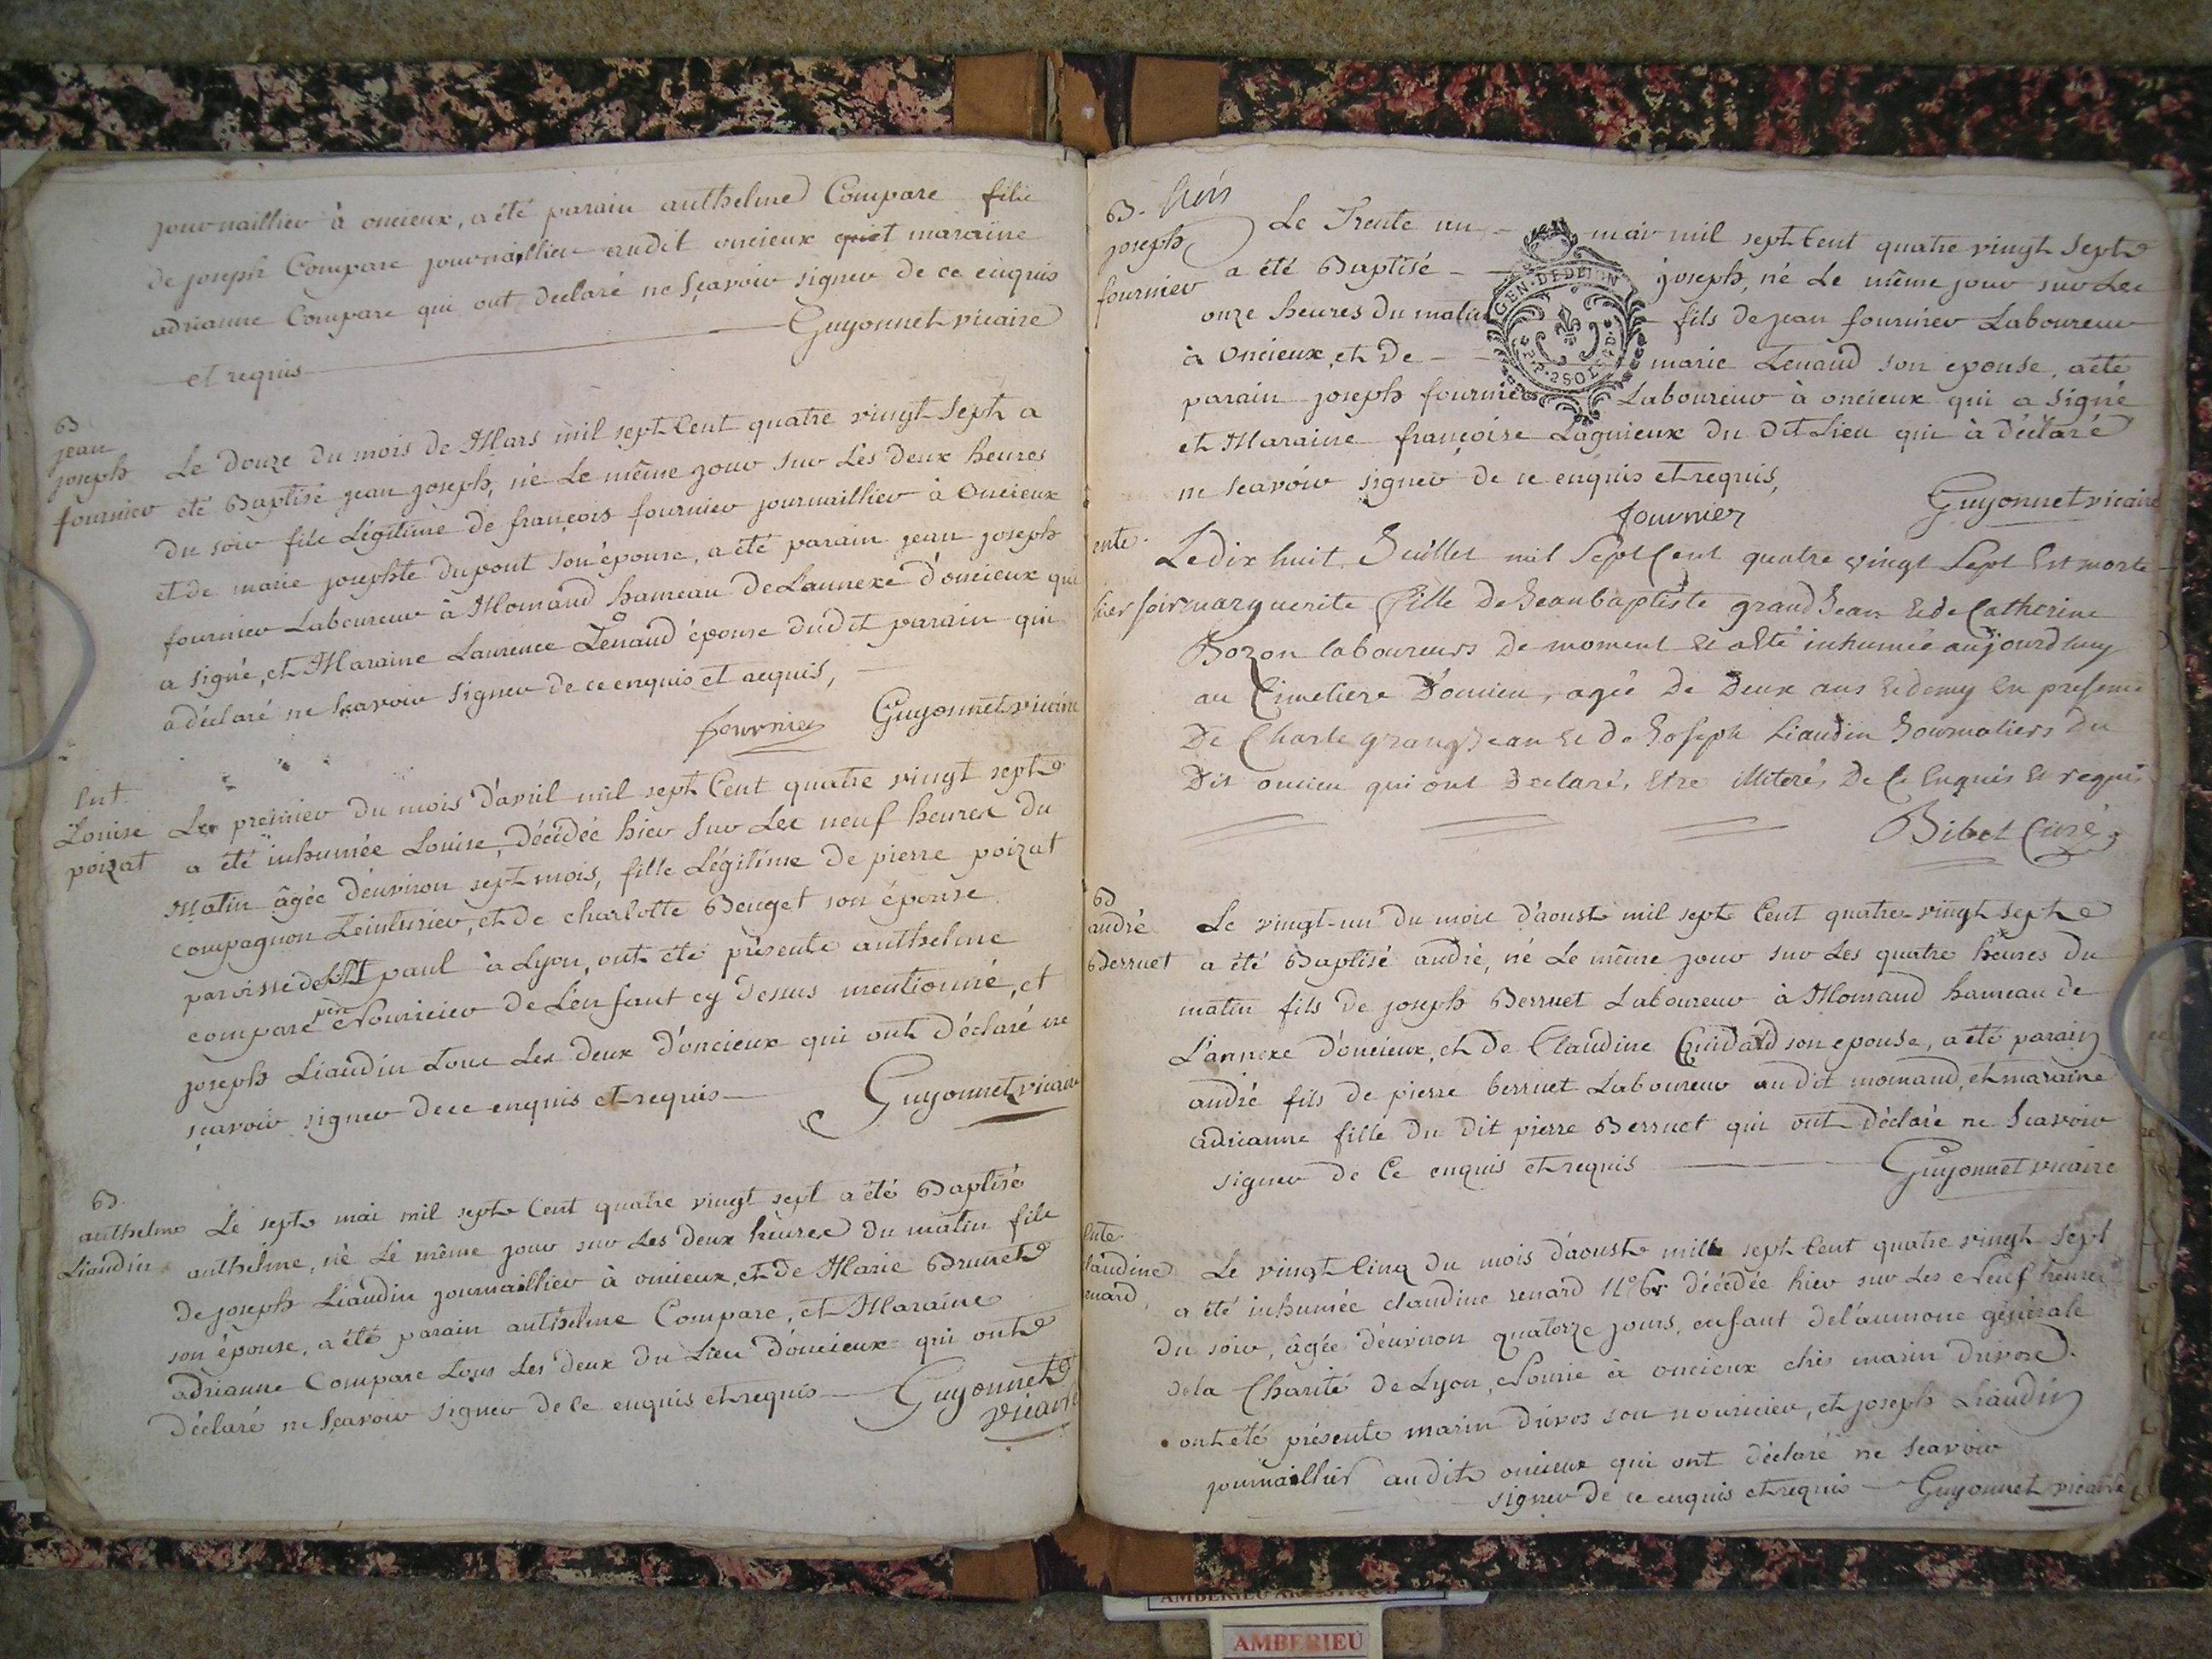 journaillier à oncieux, a été parain anthelme Compare fils
de joseph Compare journaillier audit oncieux et maraine
adrianne Compare qui ont declaré ne sçavoir signer de ce enquis
et requis Guyonnet vicaire
B
jean
joseph
fournier
Le Douze du mois de Mars mil sept Cent quatre vingt Sept a
été Baptisé jean joseph, né Le même jour sur Les deux heures
du soir fils Légitime de françois fournier journaillier à Oncieux
et de marie josephte dupont son épouse, a été parain jean joseph
fournier Laboureur à Momand hameau de Lannexe d'oncieux qui
a signé, et Maraine Laurence Tenand épouse dudit parain qui
a déclaré ne sçavoir signer de ce enquis et requis,
fournier Guyonnet vicaire
Ent.
Louise
poizat
Le premier du mois d'avril mil sept Cent quatre vingt sept
a été inhumée Louise, Décédée hier sur Les neuf heures du
Matin âgée d'environ sept mois, fille Légitime de pierre poizat
compagnon Teinturier, et de charlotte Beuget son épouse
paroisse de St paul à Lyon, ont été présents anthelme
compare père Nouricier de L'enfant cy dessus mentionné, et
joseph Liaudin tous Les deux d'oncieux qui ont déclaré ne
sçavoir signer de ce enquis et requis Guyonnet vicaire
B.
anthelme
Liaudin
Le sept mai mil sept Cent quatre vingt sept a été Baptisé
anthelme, né Le même jour sur Les deux heures du matin fils
de joseph Liaudin journaillier à oncieux, et de Marie Brunet
son épouse, a été parain anthelme Compare, et Maraine
adrianne Compare tous Les deux du Lieu d'oncieux qui ont
déclaré ne sçavoir signer de ce enquis et requis Guyonnet
vicaire
B.
joseph
fournier
Le Trente un mai mil sept Cent quatre vingt Sept
a été Baptisé joseph, né Le même jour sur Les
onze heures du matin fils de jean fournier Laboureur
à Oncieux, et de marie Tenand son epouse, a été
parain joseph fournier Laboureur à oncieux qui a Signé
et Maraine françoise Lagnieux du dit Lieu qui à déclaré
ne sçavoir signer de ce enquis et requis,
fournier Guyonnet vicaire
GEN. DE DIJON
Le dix huit Juillet mil Sept Cent quatre vingt Sept Est morte
hier soir marguerite fille De Jean baptiste grand Jean Et de Catherine
Bozon laboureurs De moment Et a Eté inhumée aujourdhuy
au Cimetiere D'oncieu, agée De Deux ans Et demy En presence
De Charle grand Jean Et de Joseph Liaudin Journaliers Du
Dit oncieu qui ont Declaré, Etre illiterés De Ce Enquis Et requis
Bibet Curé
B
andré
Berruet
Le vingt-un du mois d'aoust mil sept Cent quatre-vingt sept
a été Baptisé andré, né Le même jour sur Les quatre heures du
matin fils de joseph Berruet Laboureur à Momand hameau de
L'annexe d'oncieux, et de Claudine Guidard son epouse, a été parain
andré fils de pierre berruet Laboureur au dit momand, et maraine
adrianne fille du dit pierre Berruet qui ont déclaré ne sçavoir
signer de Ce enquis et requis Guyonnet vicaire
Ente.
laudine
enard
Le vingt Cinq du mois d'aoust mille sept Cent quatre vingt sept
a été inhumée claudine renard décédée hier sur Les Neuf heures
Du soir, âgée d'environ quatorze jours, enfant de l'aumone génèrale
de la Charité de Lyon, Nourie à oncieux chés marin
ont été présents marin son nouricier, et joseph Liaudin
journaillier audit oncieux qui ont déclaré ne sçavoir
signer de ce enquis et requis Guyonnet vicaire
AMBERIEU